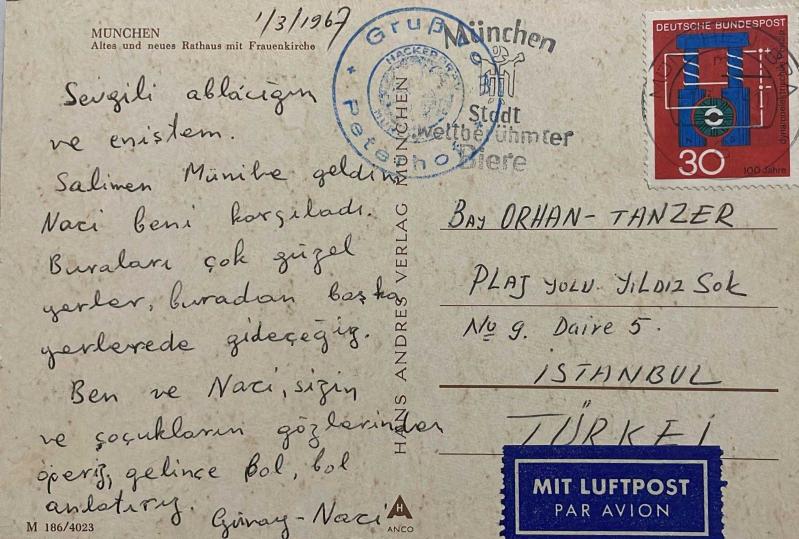 MÜNCHEN
Altes und neues Rathaus mit Frauenkirche
1/3/1967
Sevgili ablacığım
ve eniştem.
Salimen Münihe geldim
Naci beni karşıladı.
Buraları çok güzel
yerler, buradan başka
yerlerede gideçeğiz.
Ben ve Naci, sizin
ve çoçukların gözlerinden
öperiz, gelince bol, bol
anlatırız.
Günay-Naci
M 186/4023
HANS ANDRES VERLAG MÜNCHEN
A H
ANCO
Gruß vom
Peterhof
HACKERBRÄU
München
Stadt
weltberühmter
Biere
DEUTSCHE BUNDESPOST
dynamoelektrisches Prinzip
30
100 Jahre
BAY ORHAN-TANZER
PLAJ YOLU. YILDIZ SOK
No 9. Daire 5.
İSTANBUL
TÜRKEI
MIT LUFTPOST
PAR AVION